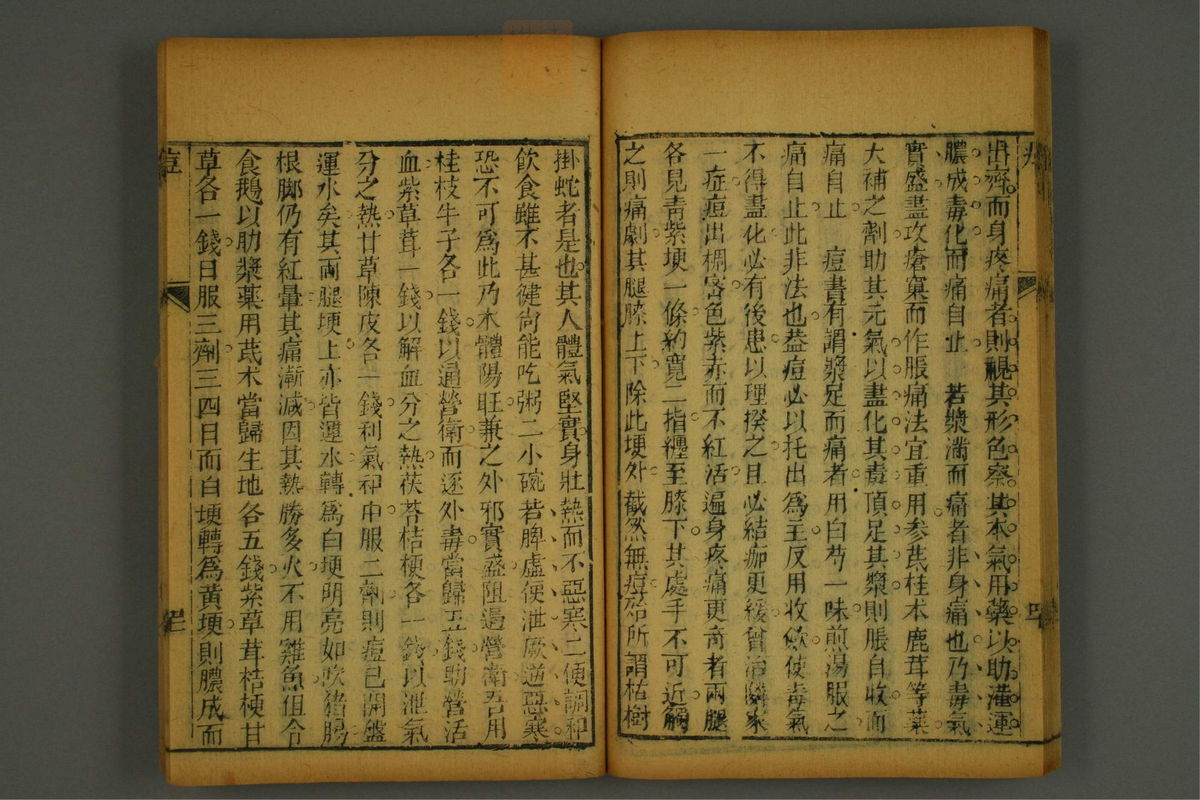 出齊而身疼痛者則視其形色察其本氣用藥以助灌運
膿成毒化而痛自止　若漿滿而痛者非身痛也乃毒氣
實盛盡攻瘡窠而作脹痛法宜重用參茋桂术鹿茸等藥
大補之劑助其元氣以盡化其毒頂足其漿則脹自收而
痛自止　痘書有謂漿足而痛者用白芍一味煎湯服之
痛自止此非法也葢痘必以托出爲主反用收歛使毒氣
不得盡化必有後患以理揆之且必結痂更緩曾治鄰家
一症痘出稠宻色紫赤而不紅活遍身疼痛更奇者兩腿
各見青紫埂一條約寬二指纏至膝下其處手不可近觸
之則痛劇其腿膝上下除此埂外截然無痘殆所謂枯樹
掛蛇者是也其人體氣堅實身壯熱而不惡寒二便調和
飲食雖不甚健尙能吃粥二小碗若脾虛便泄厥逆惡寒
恐不可爲此乃木體陽旺兼之外邪實盛阻遏營衛吾用
桂枝牛子各一錢以通營衛而逐外毒當歸五錢助營活
血紫草茸一錢以解血分之熱茯苓桔梗各一錢以泄氣
分之熱甘草陳皮各一錢利氣和中服二劑則痘已開盤
運水矣其兩腿埂上亦皆運水轉爲白埂明亮如吹猪膓
根脚仍有紅暈其痛漸減因其熱勝多火不用雞魚但令
食鵝以助漿藥用茋术當歸生地各五錢紫草茸桔梗甘
草各一錢日服三劑三四日而白埂轉爲黃埂則膿成而